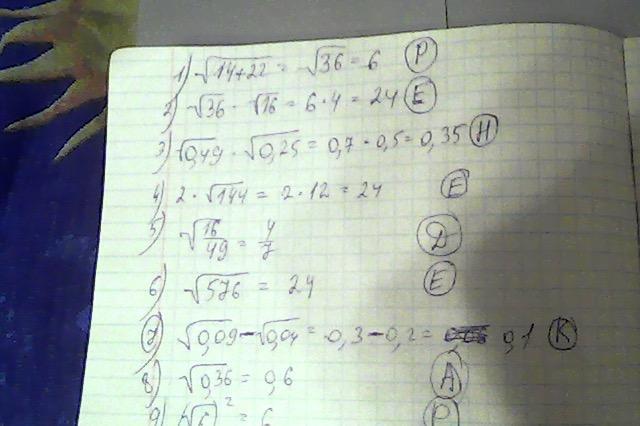 1) √14+22 = √36 = 6 Р
2) √36 · √16 = 6·4 = 24 Е
3) √0,49 · √0,25 = 0,7·0,5 = 0,35 Н
4) 2·√144 = 2·12 = 24 Е
5) √16/49 = 4/7 D
6) √576 = 24 Е
7) √0,09 - √0,04 = 0,3 - 0,2 = 0,1 К
8) √0,36 = 0,6 А
9) (√6)² = 6 Р